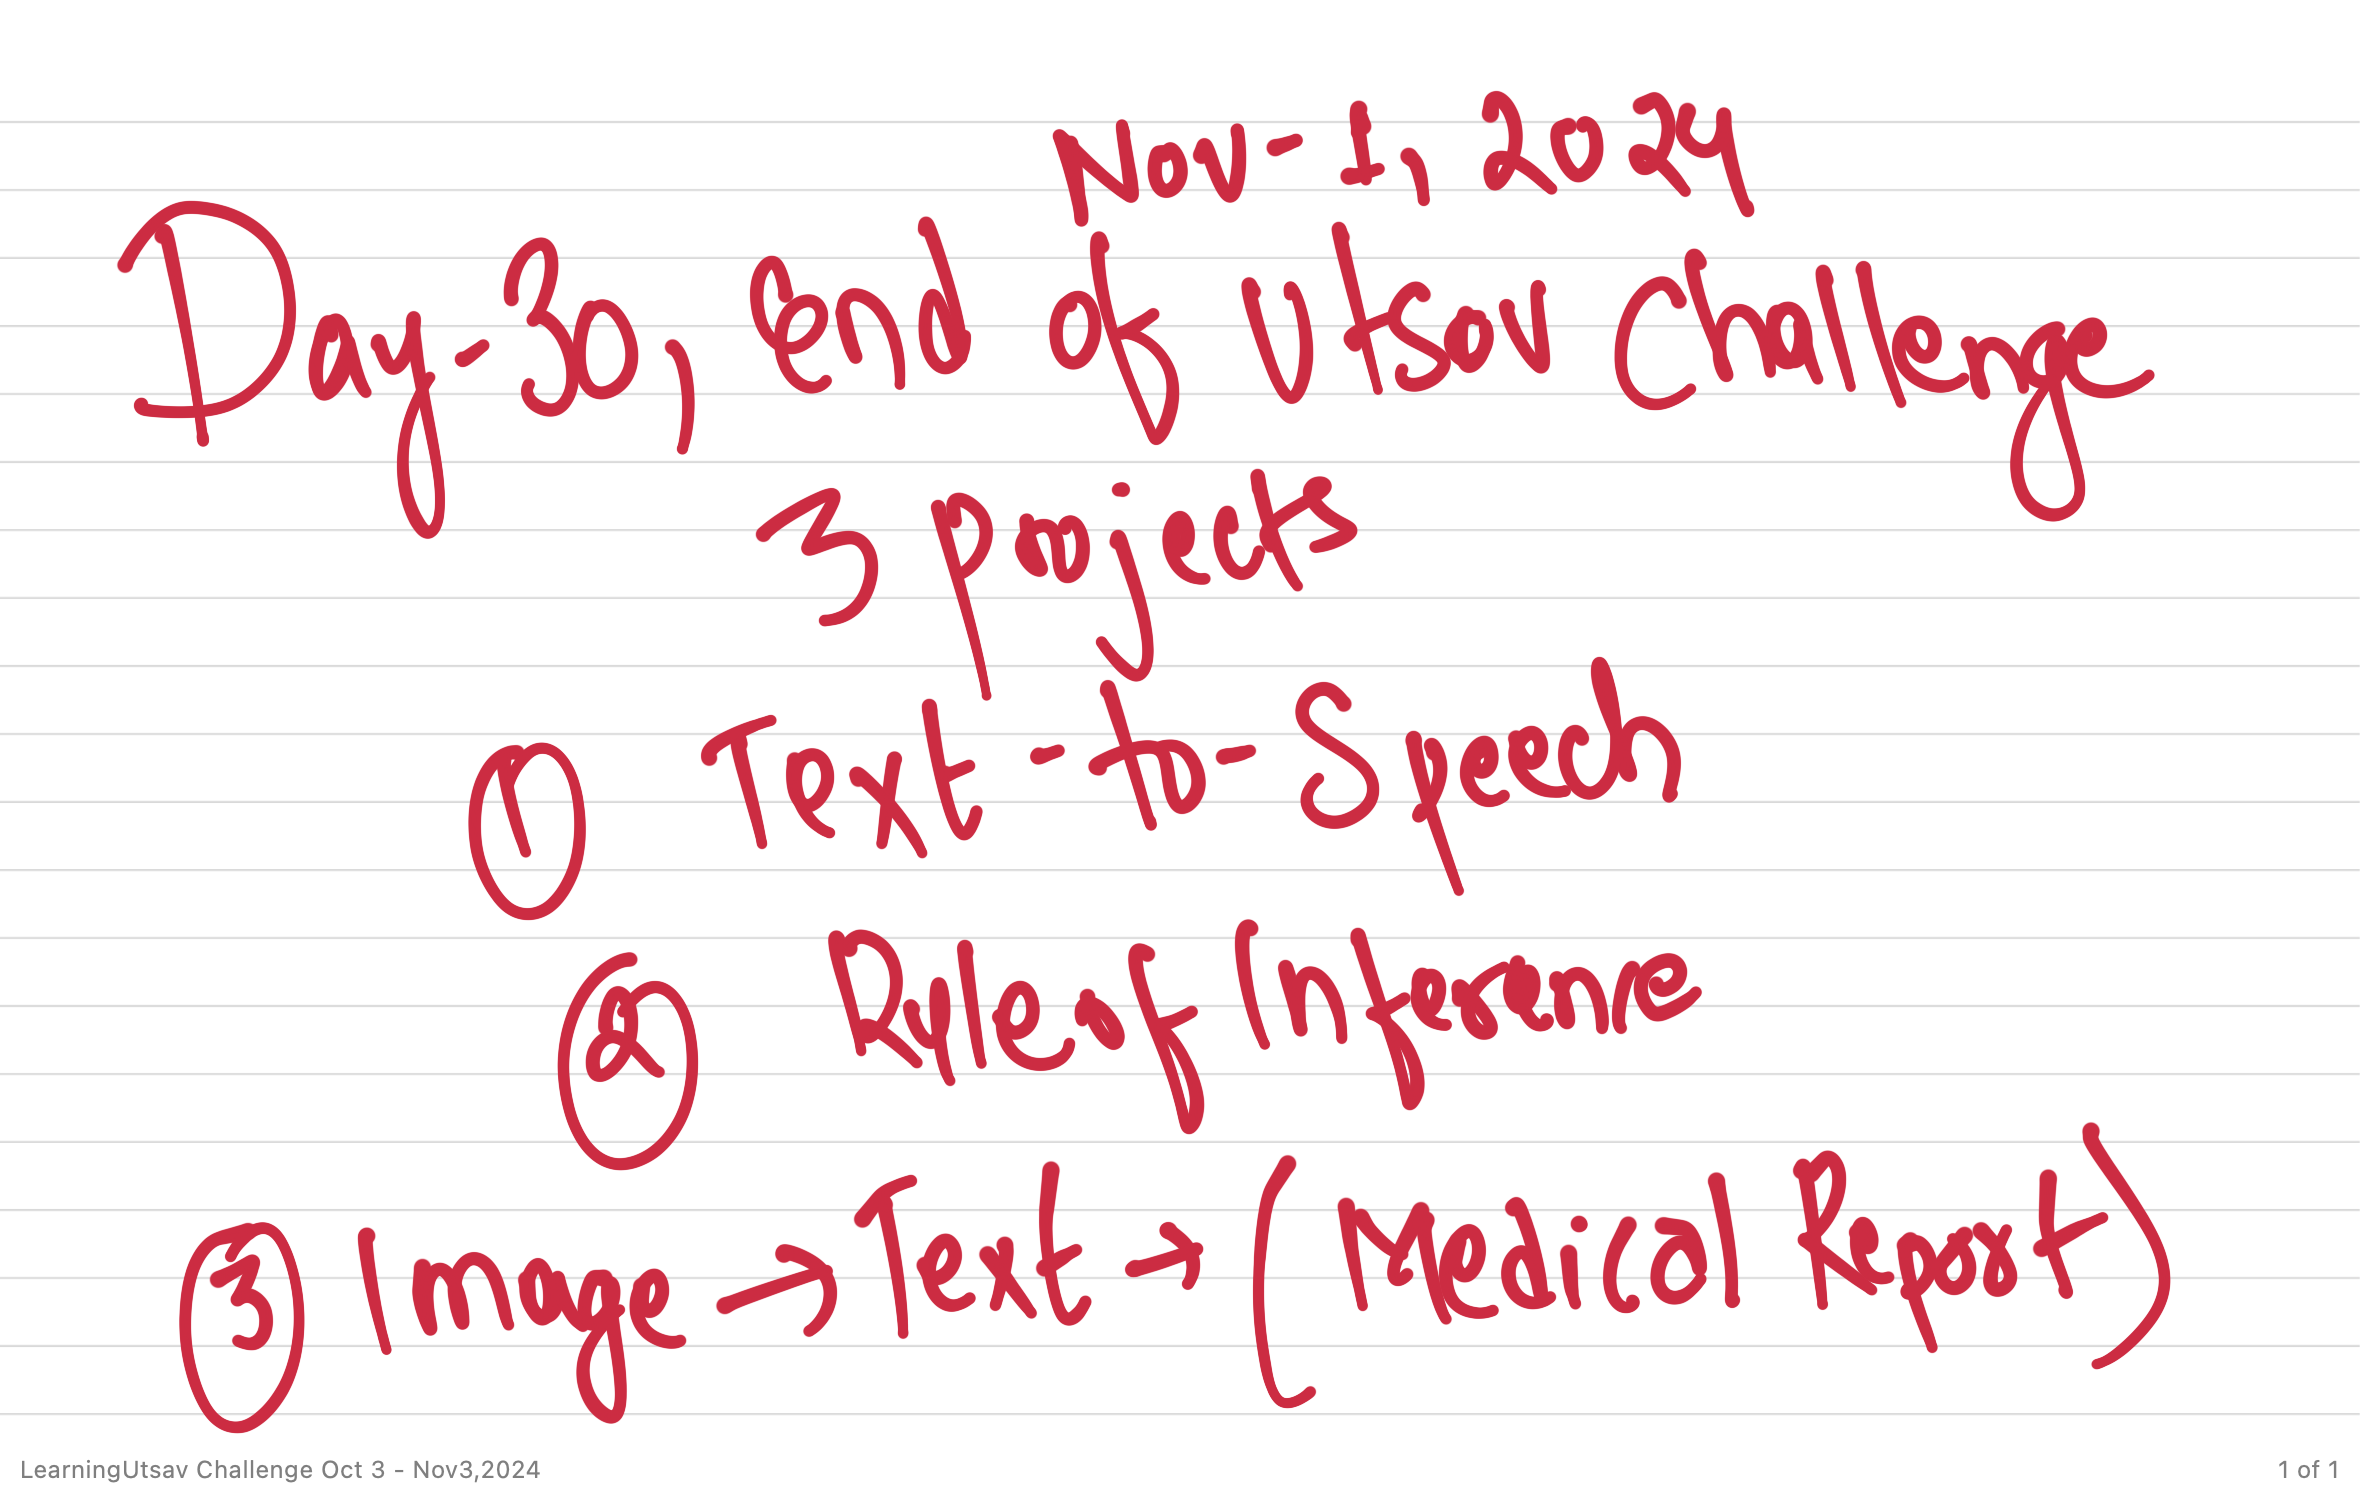 Nov-1, 2024
Day-30, end of Utsav Challenge
3 projects
① Text-to-Speech
② Rule of Inference
③ Image → Text → (Medical Report)
LearningUtsav Challenge Oct 3 - Nov3,2024
1 of 1